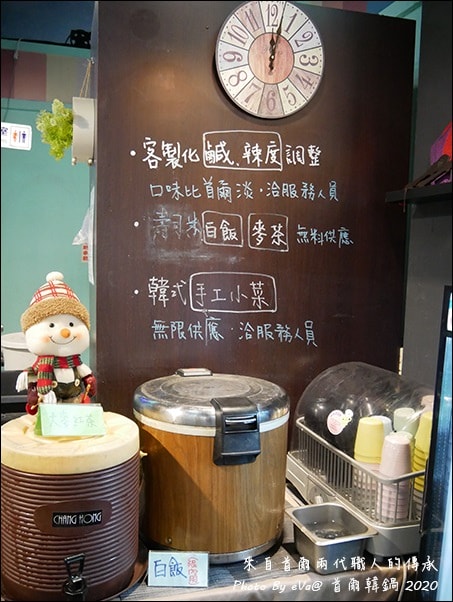 ・客製化鹹、辣度調整
口味比首爾淡・洽服務人員
・壽司米白飯 麥茶 無料供應
・韓式手工小菜
無限供應・洽服務人員
CHANG HONG
白飯
來自首爾兩代職人的傳承
Photo By eVa@ 首爾韓鍋 2020